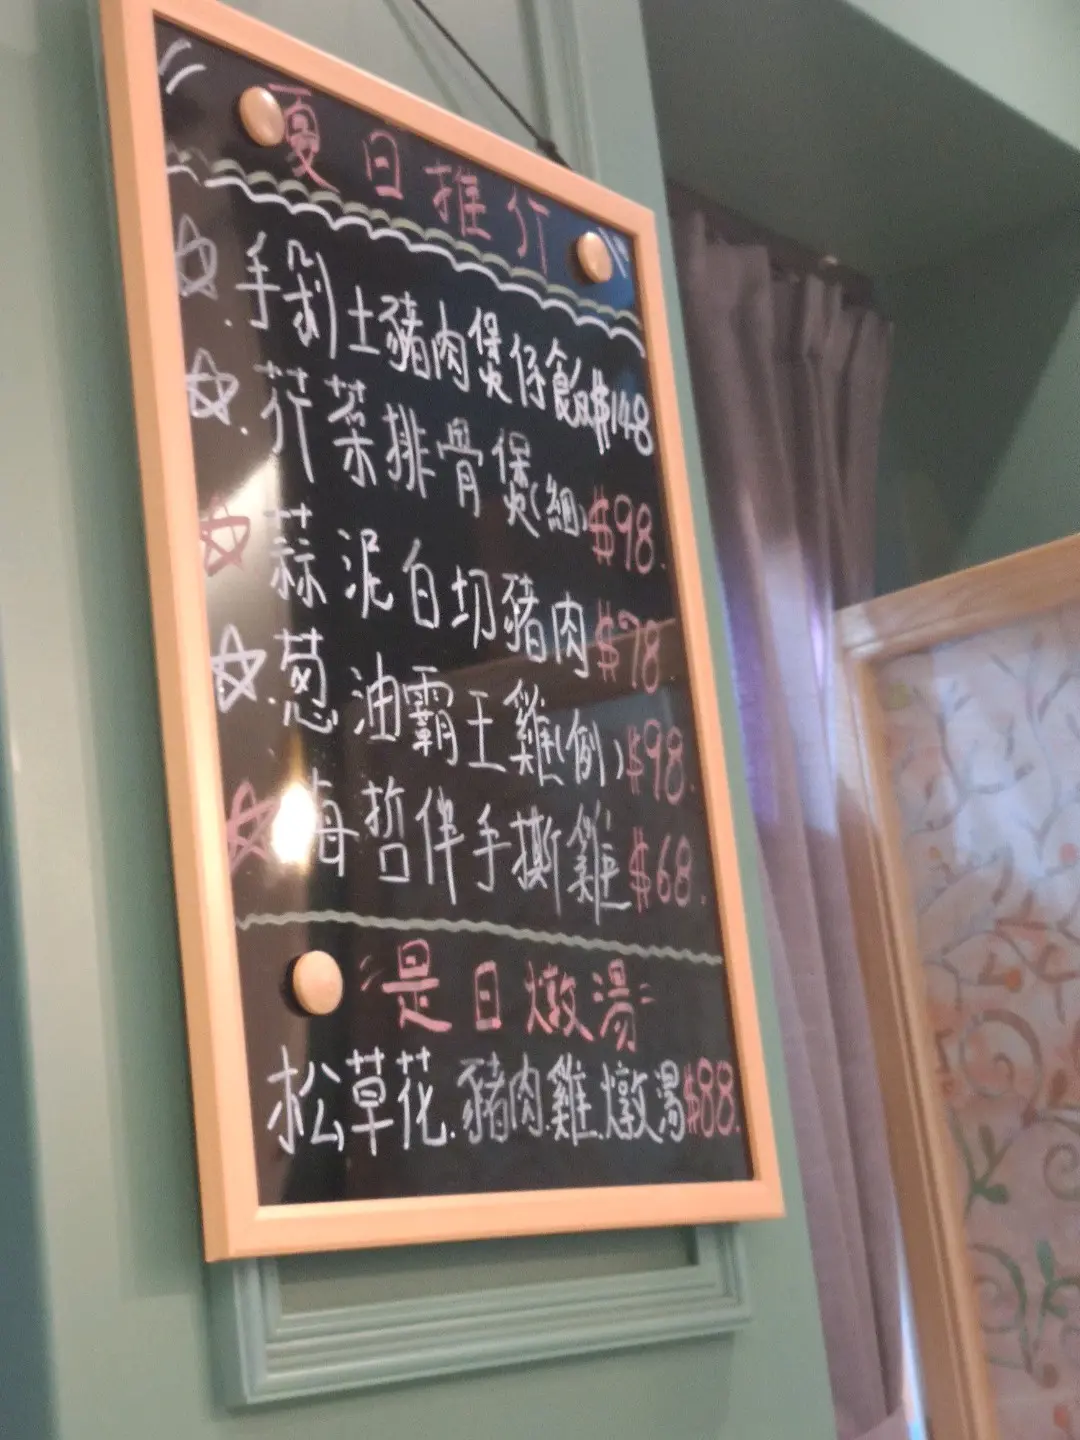 夏日推介
手剁土豬肉煲仔飯$148
芥菜排骨煲(細)$98.
蒜泥白切豬肉$78
葱油霸王雞(例)$98.
海哲伴手撕雞$68.
是日燉湯
松草花.豬肉.雞.燉湯$88.